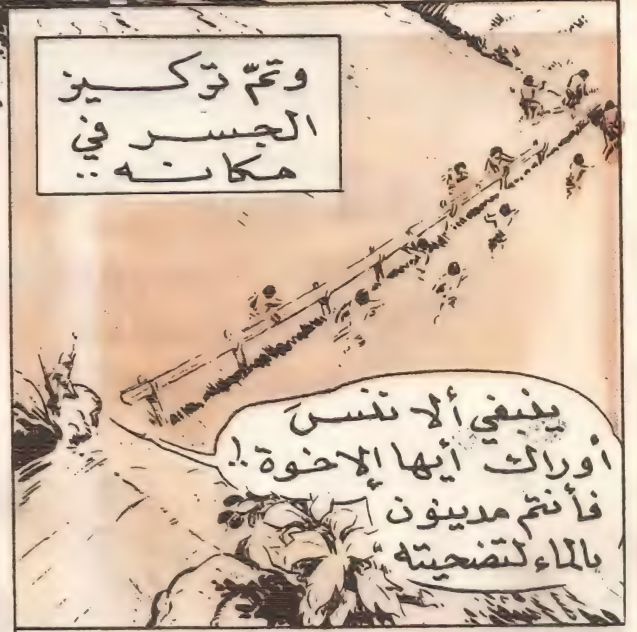 وتمّ تركـــيز
الجســـر في
مكانـــه ..
ينبغي ألا ننسَ
أوراك أيها الإخوة !!
فأنتم مدينون
بالماء لتضحيته